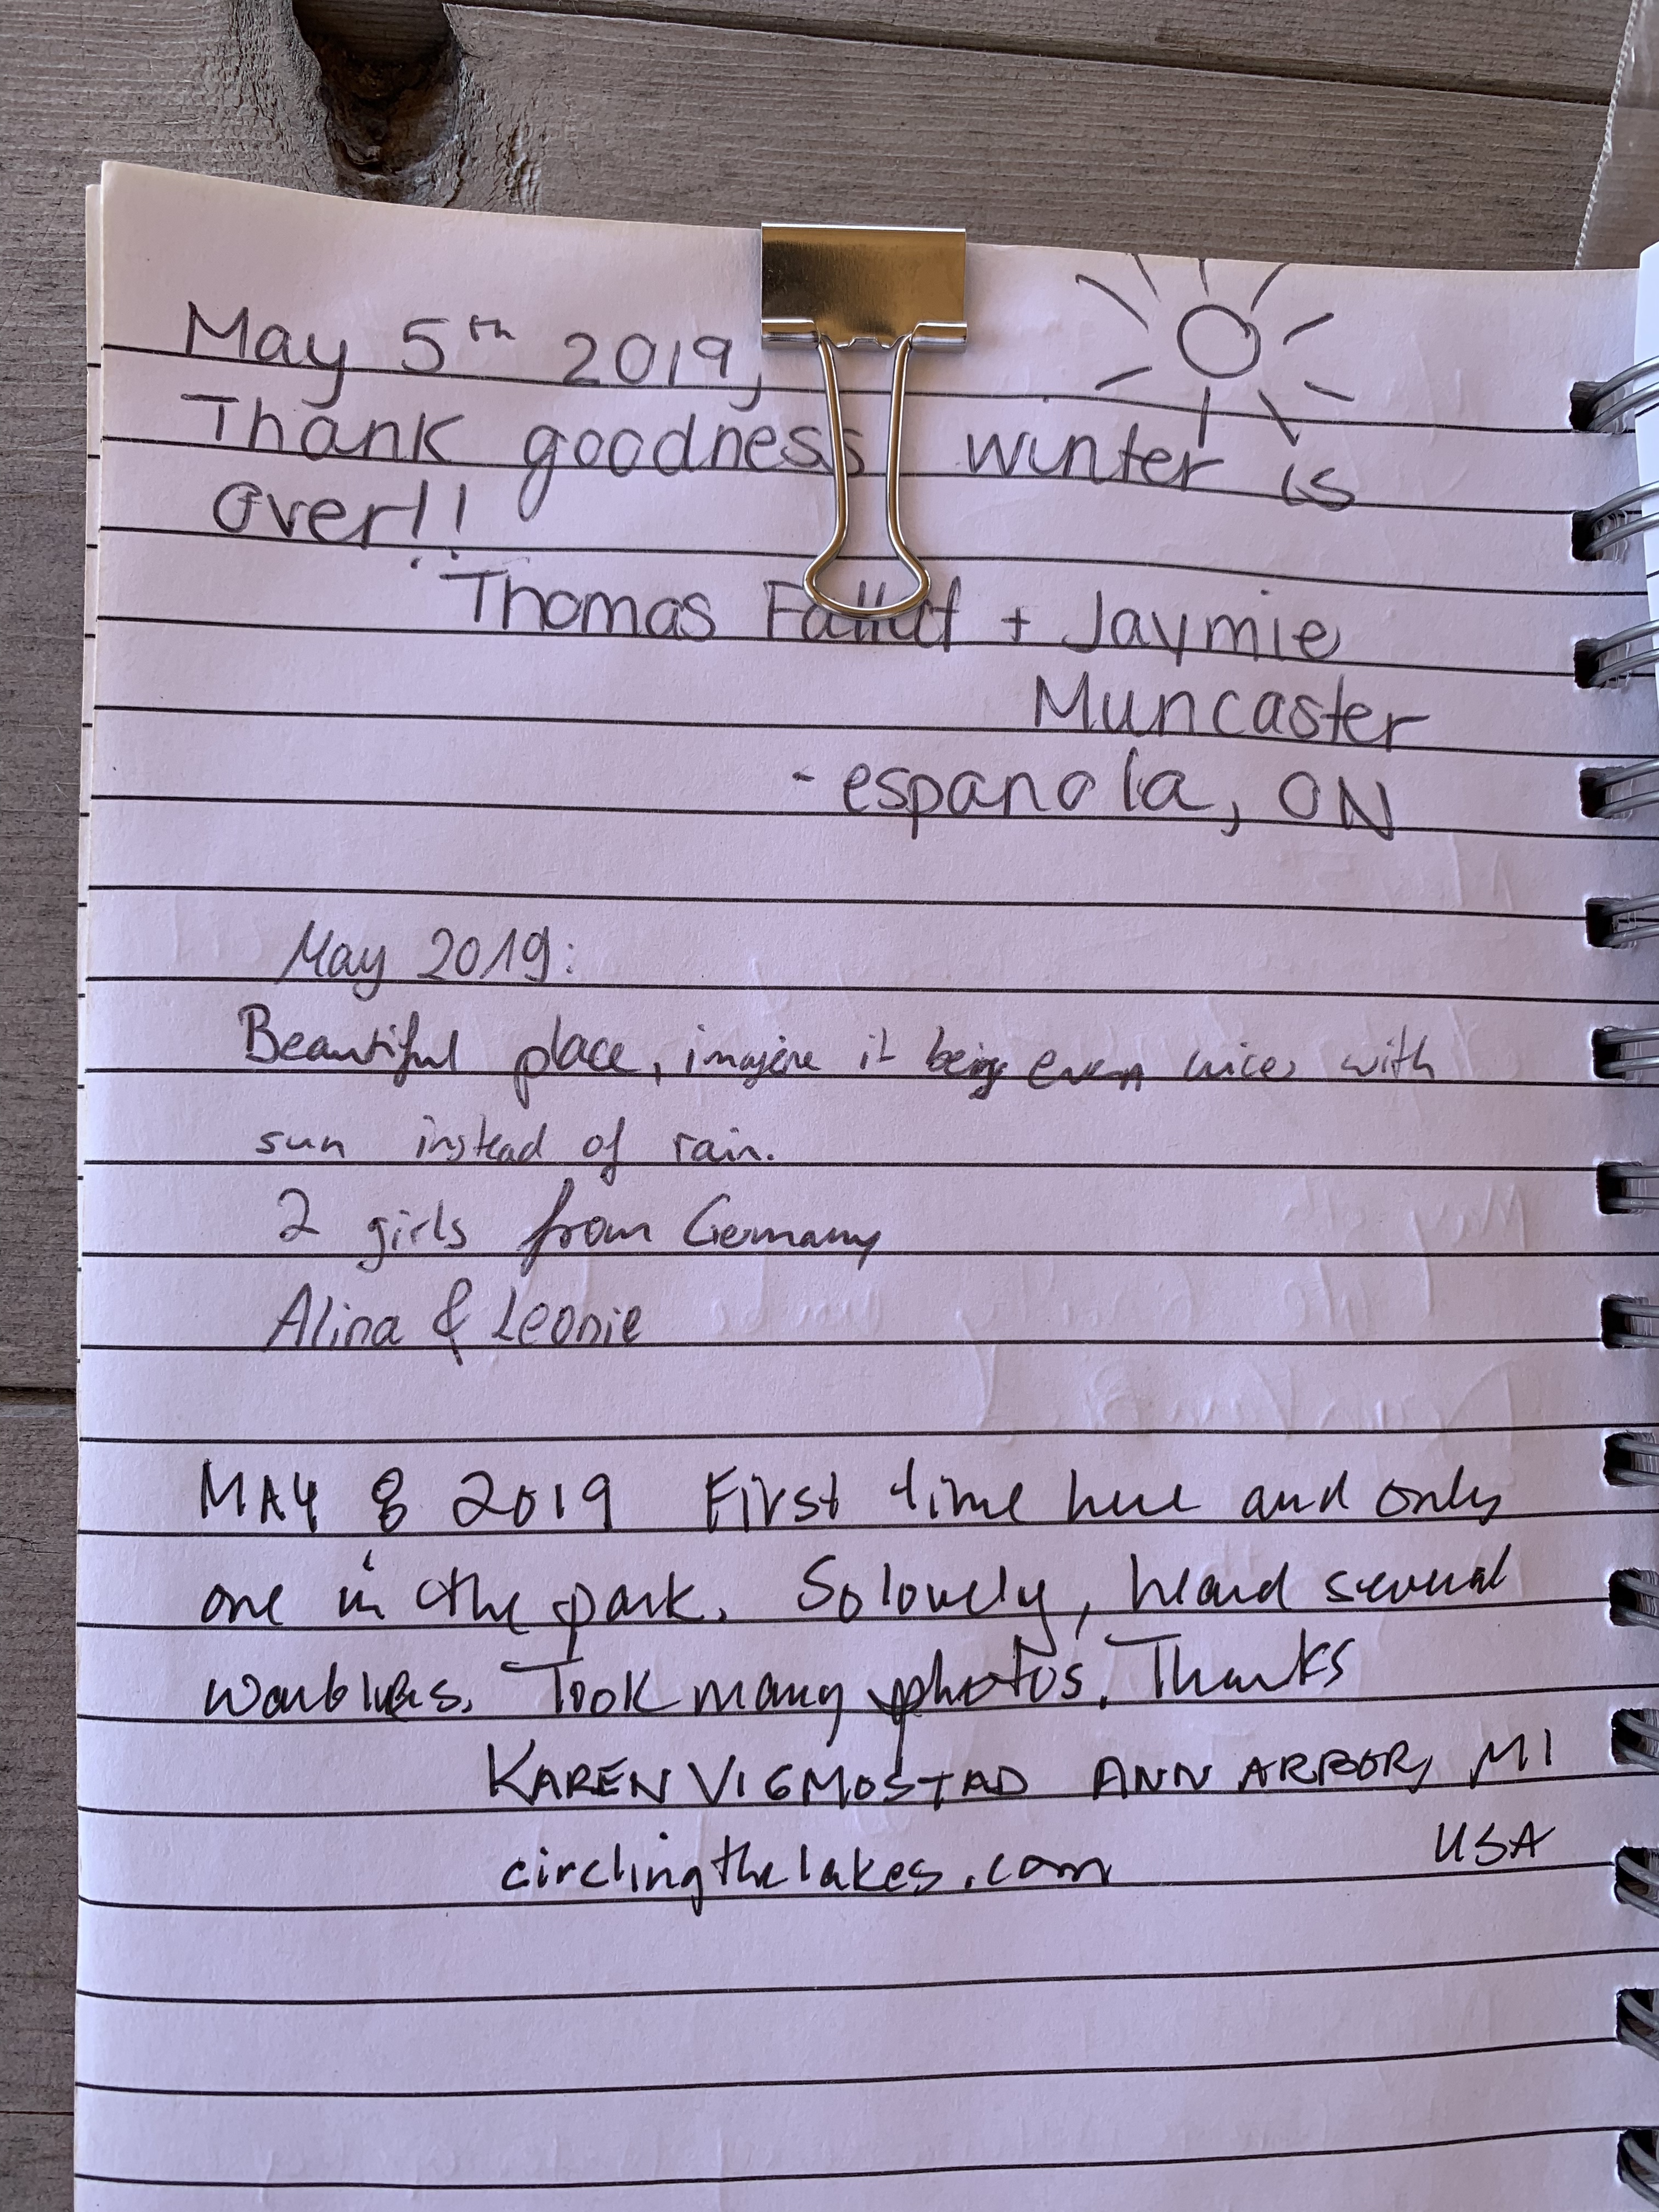 May 5th 2019,
Thank goodness winter is
over!!
Thomas + Jaymie
Muncaster
- espanola, ON
May 2019:
Beautiful place, imagine it being even nicer with
sun instead of rain.
2 girls from Germany
Alina & Leonie
MAY 8 2019 First time here and only
one in the park. So lovely, heard several
warblers. Took many photos. Thanks
KAREN VIGMOSTAD ANN ARBOR, MI
USA
circlingthelakes.com